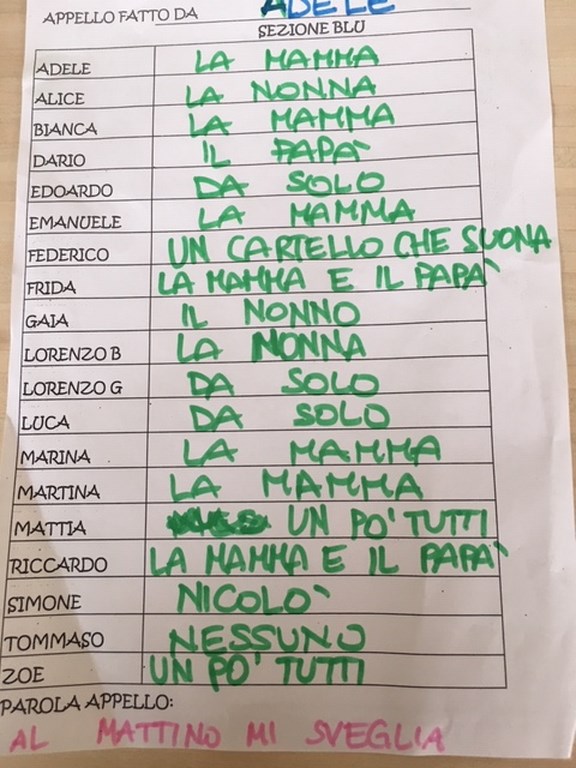 APPELLO FATTO DA ADELE
SEZIONE BLU
ADELE LA MAMMA
ALICE LA NONNA
BIANCA LA MAMMA
DARIO IL PAPA'
EDOARDO DA SOLO
EMANUELE LA MAMMA
FEDERICO UN CARTELLO CHE SUONA
FRIDA LA MAMMA E IL PAPA'
GAIA IL NONNO
LORENZO B LA NONNA
LORENZO G DA SOLO
LUCA DA SOLO
MARINA LA MAMMA
MARTINA LA MAMMA
MATTIA UN PO' TUTTI
RICCARDO LA MAMMA E IL PAPA'
SIMONE NICOLO'
TOMMASO NESSUNO
ZOE UN PO' TUTTI
PAROLA APPELLO:
AL MATTINO MI SVEGLIA